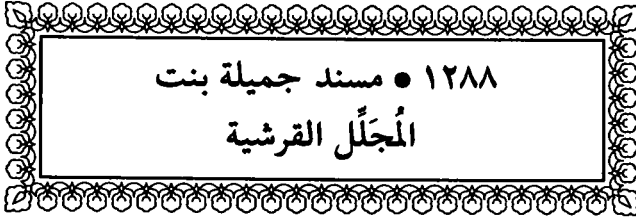 ١٢٨٨ ● مسند جميلة بنت
المُجَلِّل القرشية